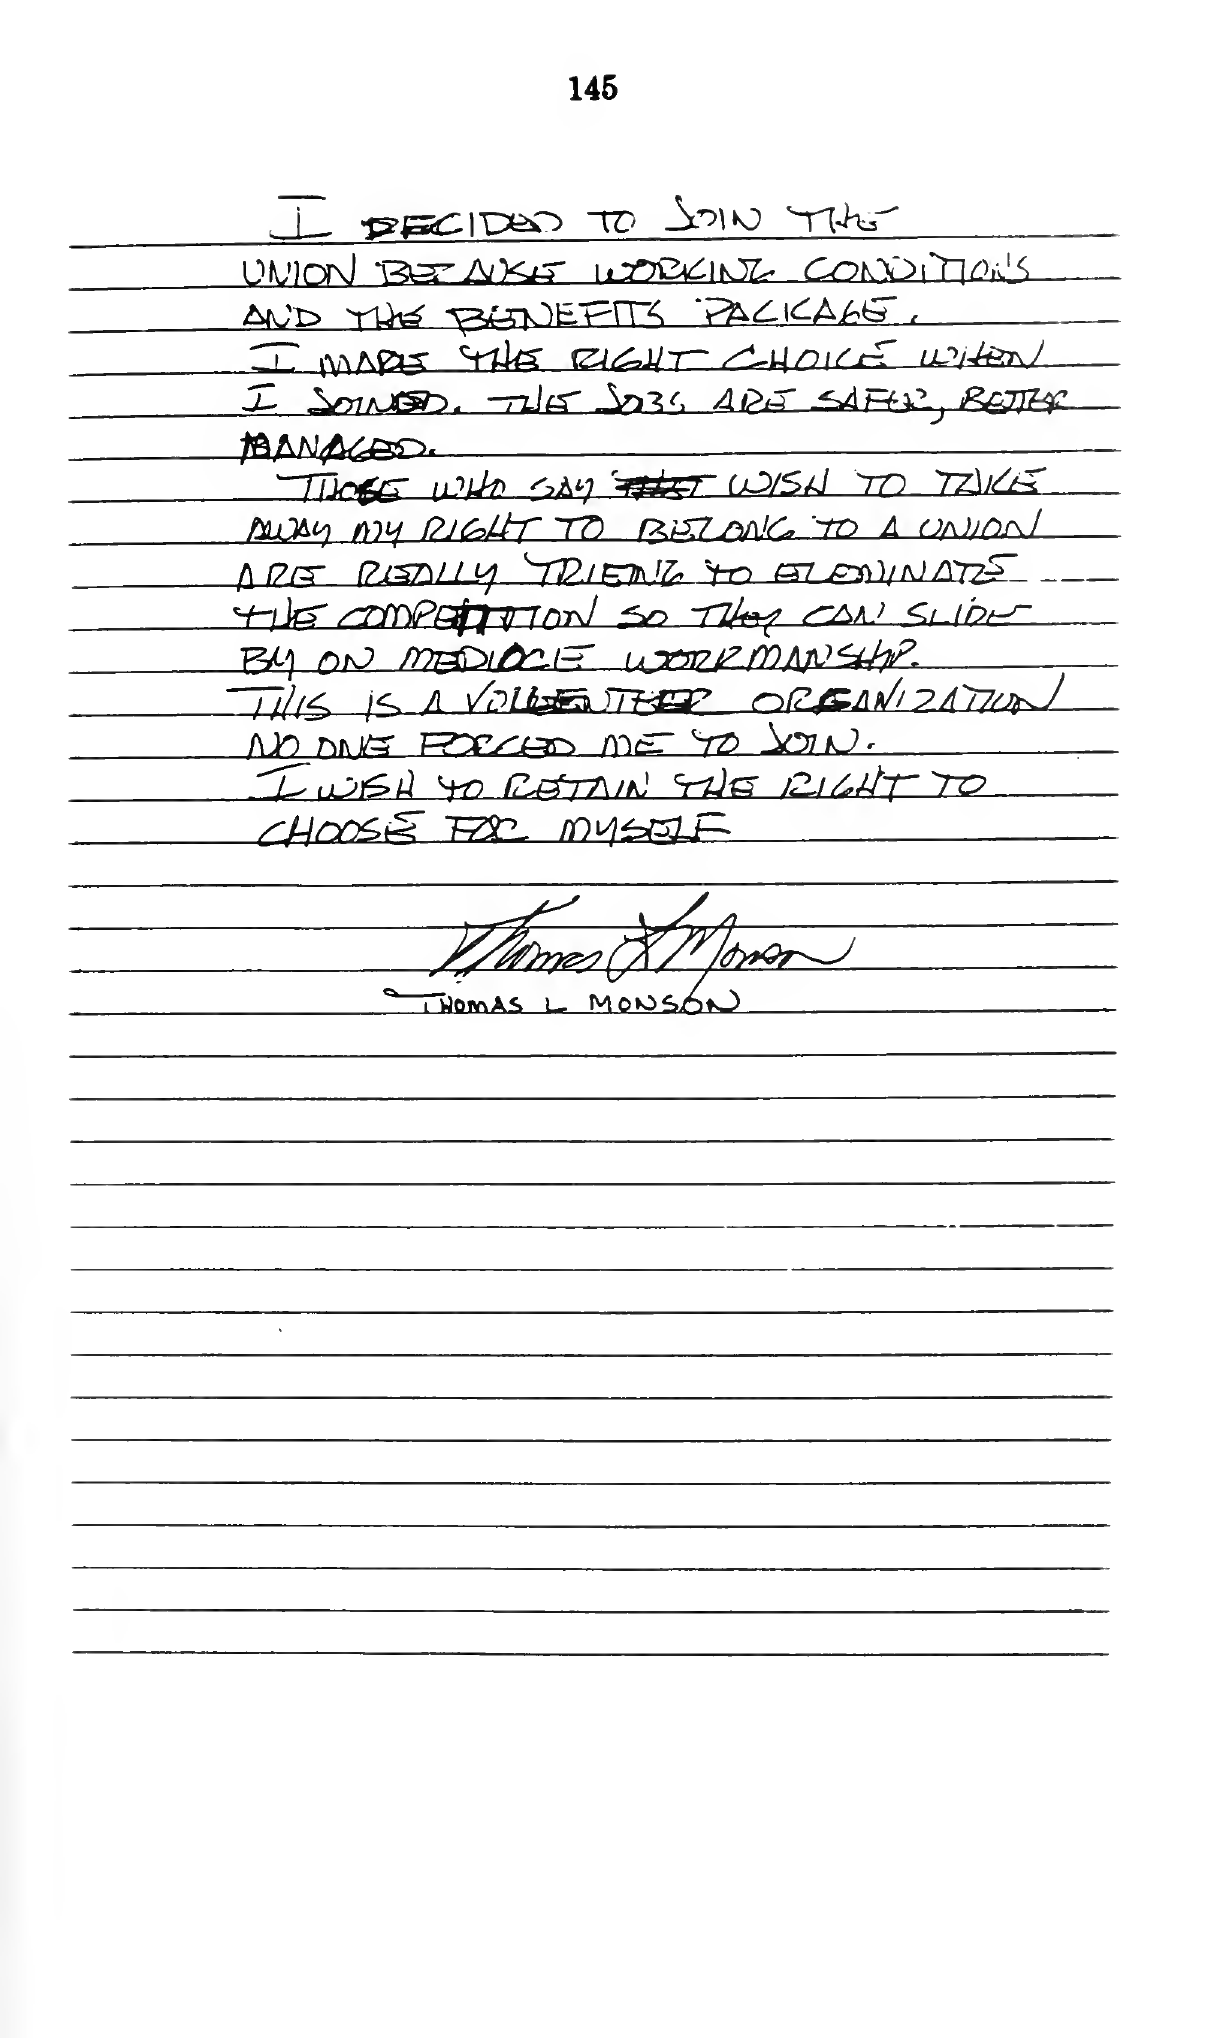 145
I DECIDED TO JOIN THE
UNION BECAUSE WORKING CONDITIONS
AND THE BENEFITS PACKAGE.
I MADE THE RIGHT CHOICE WHEN
I JOINED. THE JOBS ARE SAFER, BETTER
MANAGED.
THOSE WHO SAY THAT WISH TO TAKE
AWAY MY RIGHT TO BELONG TO A UNION
ARE REALLY TRIENG TO ELEMINATE
THE COMPETITION SO THEY CAN SLIDE
BY ON MEDIOCIE WORKMANSHIP.
THIS IS A VOLUENTEER ORGANIZATION
NO ONE FORCED ME TO JOIN.
I WISH TO RETAIN THE RIGHT TO
CHOOSE FOR MYSELF
Thomas L Monson
THOMAS L MONSON